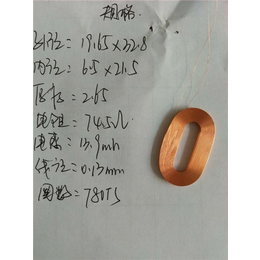 规格.
外径=19.65×32.8
内径=6.5×21.5
厚长=2.65
电阻=74.5Ω
电感=13.9mh
线径=0.13mm
圈数=780TS